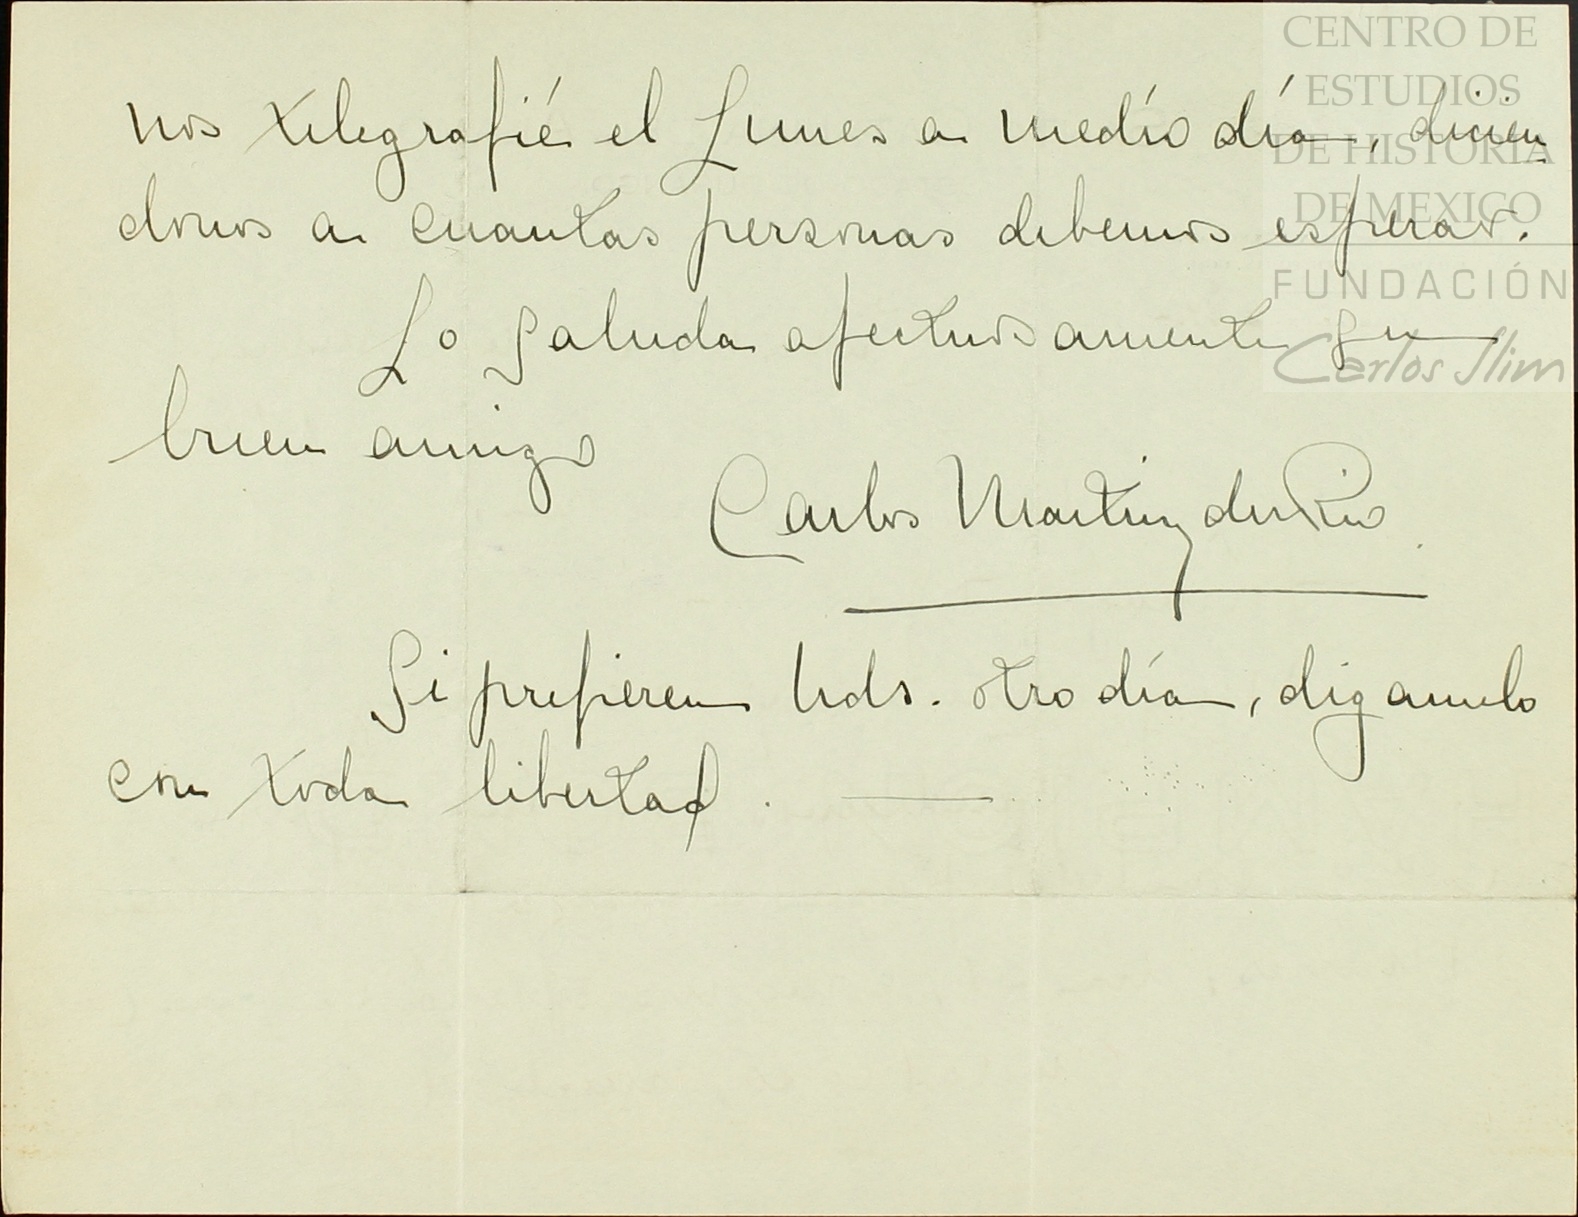 CENTRO DE
ESTUDIOS
DE HISTORIA
DE MEXICO
FUNDACIÓN
Carlos Slim
nos telegrafíe el Lunes a medío día, dicien-
donos a cuantas personas debemos esperar.
Lo saluda afectuosamente su
buen amigo
Carlos Martinez del Rio
Si prefieren Uds. otro día, diganmelo
con toda libertad.